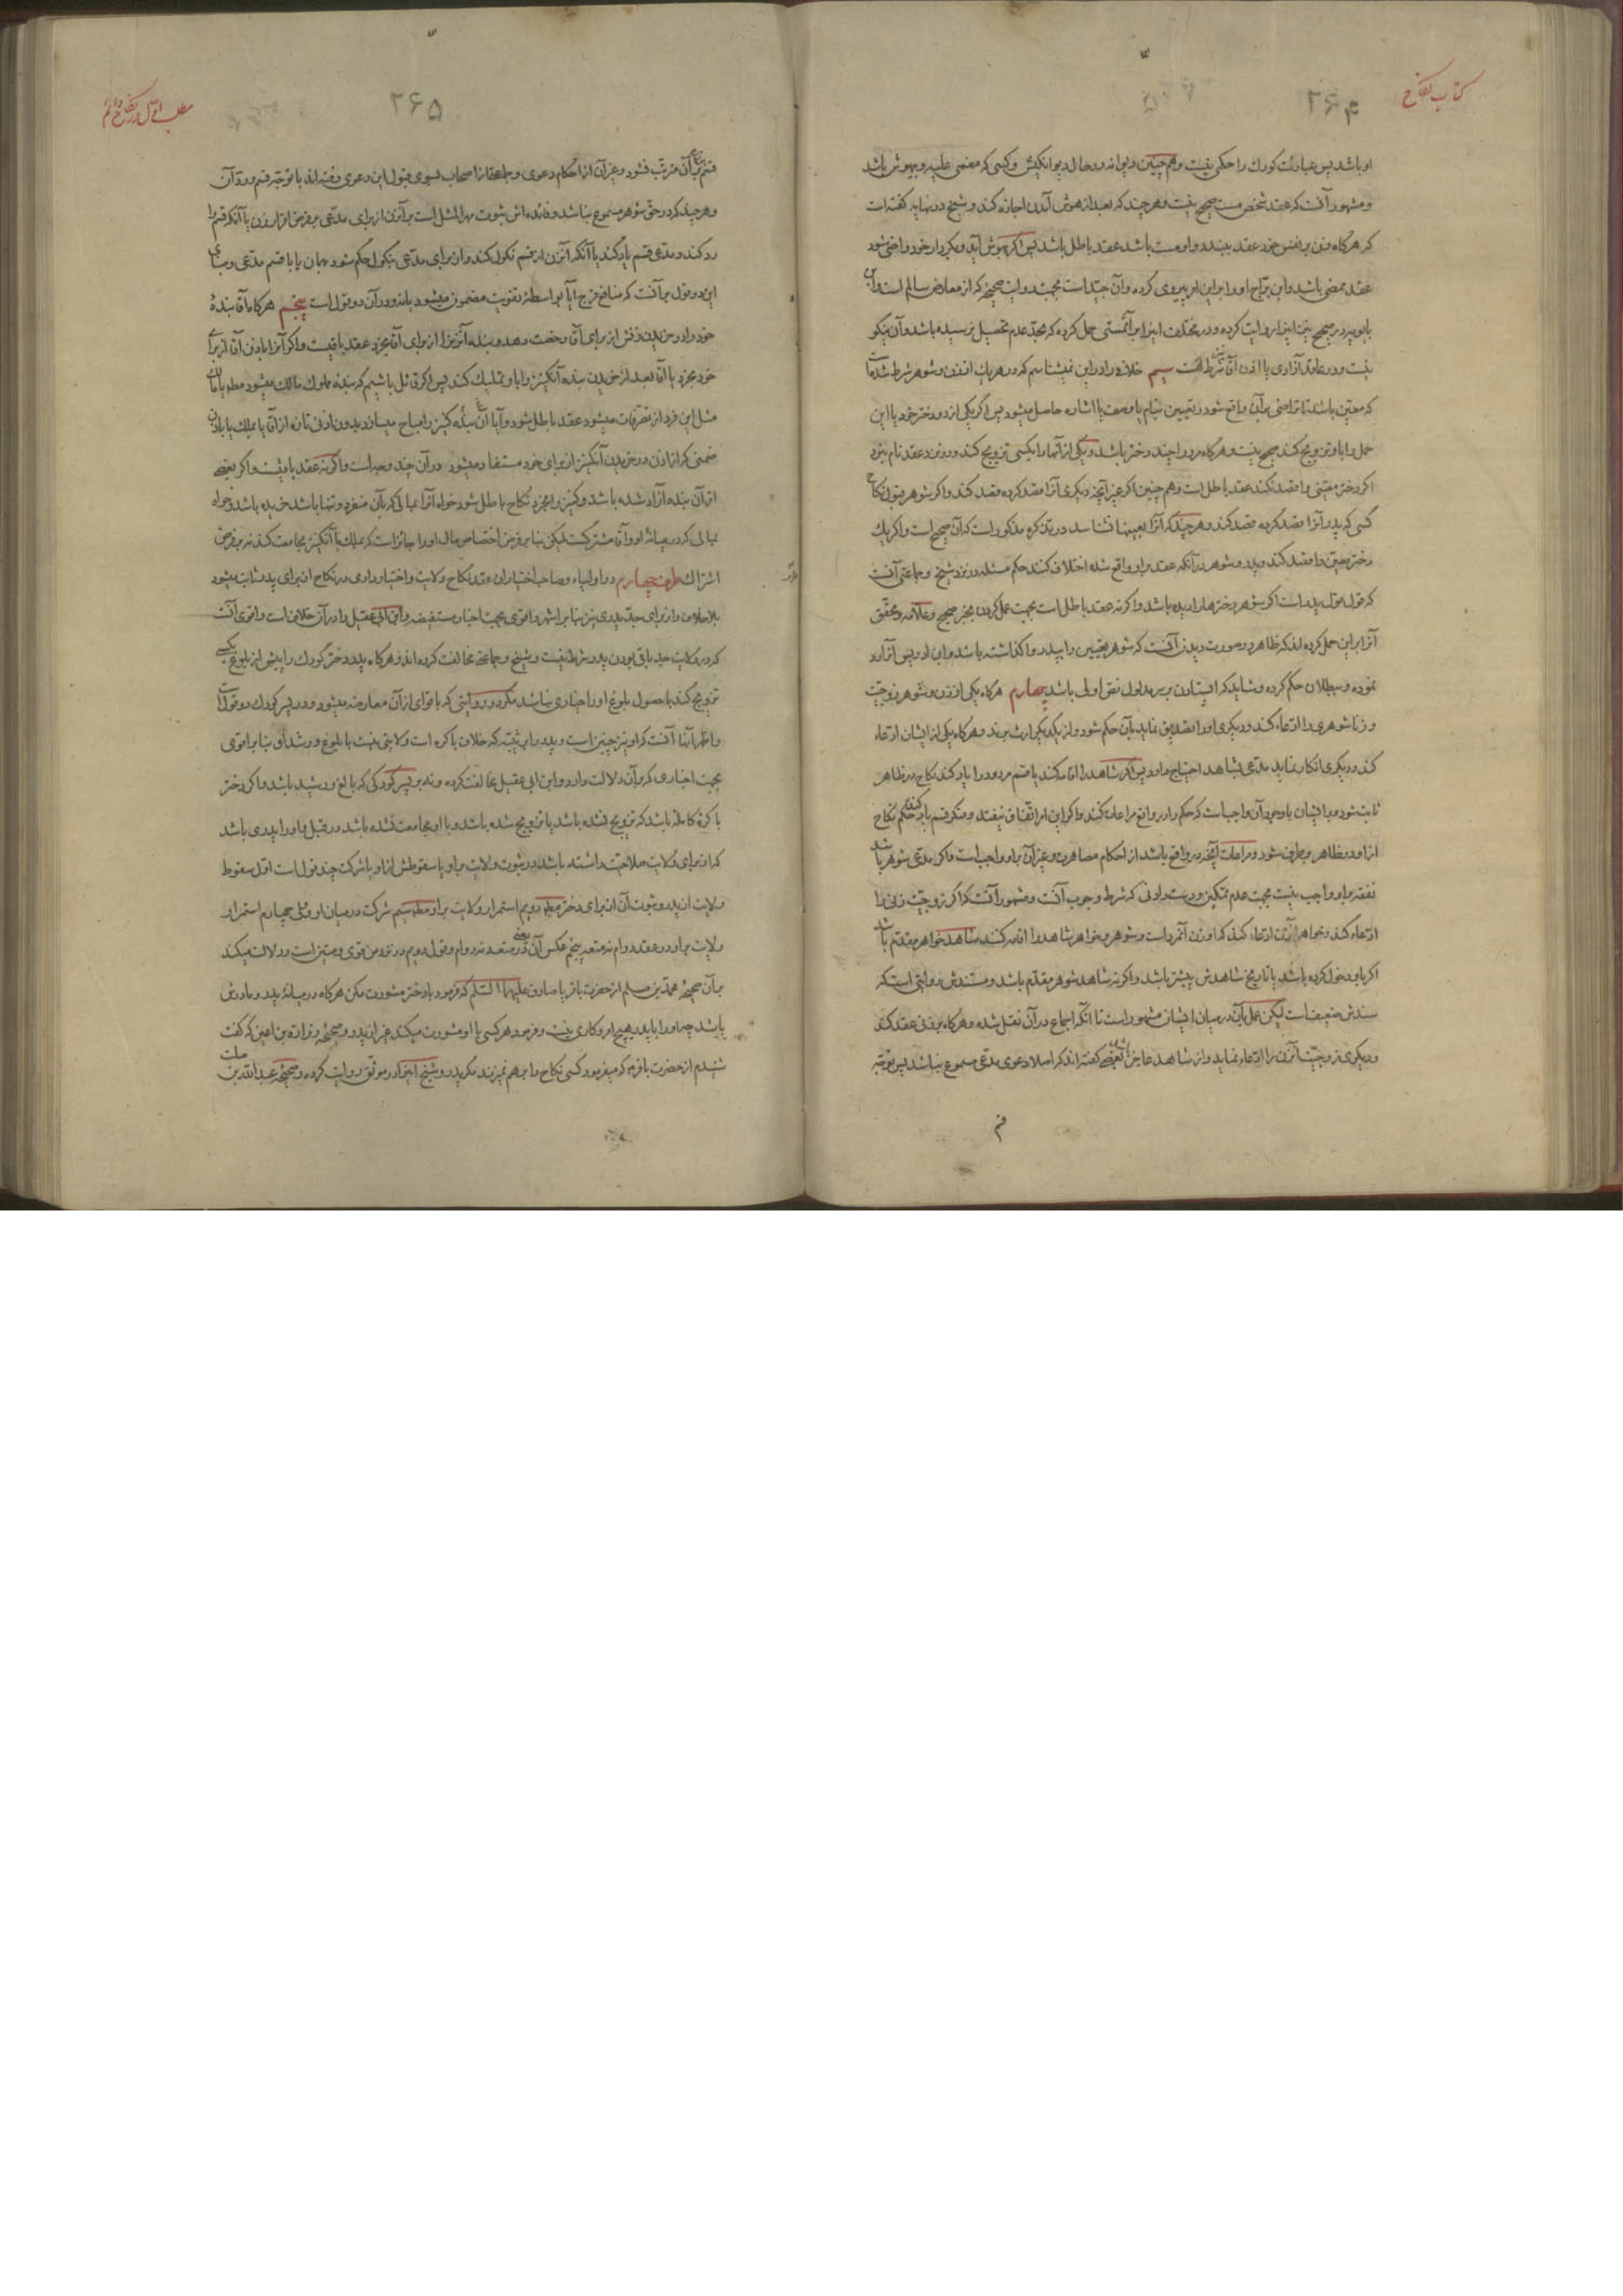 کتاب نکاح
۲۶۴
او باشد پس عبارت کودک را حکمی نیست و همچنین دیوانه در حال دیوانگیش و کسی که مغمی علیه و بیهوش باشد
و مشهور آنست که عقد شخص مست صحیح نیست و هر چند که بعد از هوش آمدن اجازه کند و شیخ در نهایه گفته است
که هرگاه زن بر نفس خود عقد ببندد و او مست باشد عقد باطل باشد پس اگر بهوش آید و بکردار خود راضی شود
عقد ممضی باشد و ابن براج او را بر این امر پیروی کرده و آن جید است بجهت روایت صحیحه که از معارض سالم است و ابن
بابویه در صحیح نیز اینرا روایت کرده و در مختلف اینرا بر آن مستی حمل کرده که بحد عدم تحصیل نرسیده باشد و آن نیکو
نیست و در عاقد آزادی یا اذن آقا شرط است سیم خلافی را در این نمیشناسم که در هر یک از زن و شوهر شرط شده است
که معین باشد تا تراضی بر آن واقع شود و تعیین بنام یا وصف یا اشاره حاصل میشود پس اگر یکی از دو دختر خود یا این
حمل را باو تزویج کند صحیح نیست و هرگاه مرد را چند دختر باشد و یکی از آنها را بکسی تزویج کند و در نزد عقد نام نبرد
اگر دختر معینی را قصد نکند عقد باطل است و همچنین اگر غیر آنچه دیگری آنرا قصد کرده قصد کند و اگر شوهر قبول نکاح
کسی که پدر آنرا قصد کرده قصد کند و هر چند که آنرا بعینها نشناسد در تذکره مذکور است که آن صحیح است و اگر یک
دختر معین را قصد کند و پدر و شوهر در آنکه عقد بر او واقع شده اختلاف کنند حکم مسئله در نزد شیخ و جماعتی آنست
که قول قول پدر است اگر شوهر دخترها را دیده باشد و اگر نه عقد باطل است بجهت عمل کردن بخبر صحیح و علامه و محقق
آنرا بر این حمل کرده‌اند که ظاهر در صورت دیدن آنست که شوهر تعیین را بپدر واگذاشته باشد و ابن ادریس آنرا رد
نموده و ببطلان حکم کرده و شاید که ایستادن بر مدلول نص اولی باشد چهارم هرگاه یکی از زن و شوهر زوجیت
و زناشوهری را ادعاء کند و دیگری او را تصدیق نماید بآن حکم شود و از یکدیگر ارث برند و هرگاه یکی از ایشان ادعاء
کند و دیگری انکار نماید مدعی بشاهد احتیاج دارد پس اگر شاهد را اقامه کند یا قسم مردود را یاد کند نکاح در ظاهر
ثابت شود و بر ایشان با وجود آن واجب است که حکم را در واقع مراعات کنند و اگر این امر اتفاق نیفتد و منکر قسم یاد کند حکم نکاح
از او در ظاهر برطرف شود و مراعات آنچه در واقع باشد از احکام مصاهرت و غیر آن بر او واجب است و اگر مدعی شوهر باشد
نفقه بر او واجب نیست بجهت عدم تمکین و دست دادنی که شرط وجوب آنست و مشهور آنست که اگر زوجیت زنی را
ادعاء کند و خواهر آن زن ادعاء کند که او زن آنمرد است و شوهر و خواهر شاهد را اقامه کنند شاهد خواهر مقدم باشد
اگر باو دخول کرده باشد یا تاریخ شاهدش پیشتر باشد و اگر نه شاهد شوهر مقدم باشد و مستندش روایتی است که
سندش ضعیف است لیکن عمل بآن در میان ایشان مشهور است تا آنکه اجماع در آن نقل شده و هرگاه بر زنی عقد کند
و دیگری زوجیت آنزن را ادعاء نماید و از شاهد عاجز باشد بعضی گفته‌اند که اصلا دعوی مدعی مسموع نباشد پس توجه
قسم
مطلب اول در نکاح دائم
۲۶۵
قسم بر آن مترتب نشود و غیر آن از احکام دعوی و جماعتی از اصحاب بسوی قبول این دعوی رفته‌اند با توجه قسم و رد آن
و هر چند که در حق شوهر مسموع نباشد و فائده‌اش ثبوت مهر المثل است بر آنزن از برای مدعی بر فرض اقرار زن یا آنکه قسم را
رد کند و مدعی قسم یاد کند یا آنکه آنزن از قسم نکول کند و از برای مدعی بنکول حکم شود بهمان یا با قسم مدعی و مبنای
این دو قول بر آنست که منافع فرج آیا بواسطه تفویت مضمون میشود یا نه و در آن دو قول است پنجم هرگاه آقا بنده
خود را در خریدن زنش از برای آقا رخصت دهد و بنده آنزن را از برای آقا بخرد عقد باقیست و اگر آنرا باذن آقا از برای
خود بخرد یا آقا بعد از خریدن بنده آنکنیز را باو تملیک کند پس اگر قائل باشیم که بنده مملوک مالک میشود مطلقا یا
مثل این فرد از تصرفات میشود عقد باطل شود و آیا آن بنده کنیز را مباح میسازد بدون اذنی تازه از آقا یا بملک یا باذن
ضمنی که از اذن در خریدن آنکنیز از برای خود مستفاد میشود در آن چند وجه است و اگر نه عقد باقیست و اگر بعضی
از آن بنده آزاد شده باشد و کنیز را بخرد نکاح باطل شود خواه آنرا بمالی که بآن منفرد و تنها باشد خریده باشد و خواه
بمالی که در میانه او و آقا مشترکست لیکن بنا بر فرض اختصاص مال او را جائز است که بملک با آنکنیز مجامعت کند نه بر فرض
اشتراک طرف چهارم در اولیاء و صاحب اختیاران عقد نکاح ولایت و اختیارداری در نکاح از برای پدر ثابت میشود
بلا خلاف و از برای جد پدری نیز بنا بر اشهر و اقوی بجهت اخبار مستفیضه و ابن ابی عقیل را در آن خلاف است و اقوی آنست
که در ولایت جد باقی بودن پدر شرط نیست و شیخ و جماعتی مخالفت کرده‌اند و هرگاه پدر دختر کودک را پیش از بلوغ بکسی
تزویج کند با حصول بلوغ او را خیاری نباشد مگر در روایتی که با قوای از آن معارضه میشود و در پسر کودک دو قول است
و اظهر آنها آنست که او نیز چنین است و پدر را بر ثیبه که خلاف باکره است ولایتی نیست با بلوغ و رشد او بنا بر اقوی
بجهت اخباری که بر آن دلالت دارد و ابن ابی عقیل مخالفت کرده و نه بر پسر کودکی که بالغ و رشید باشد و اگر دختر
باکره کامله باشد که تزویج نشده باشد یا تزویج شده باشد و با او مجامعت نشده باشد در قبل و او را پدری باشد
که از برای ولایت صلاحیت داشته باشد در ثبوت ولایت بر او یا سقوطش از او یا شرکت چند قول است اول سقوط
ولایت از پدر و ثبوت آن از برای دختر مطلقا دویم استمرار ولایت بر او مطلقا سیم شرکت در میان او و ولی چهارم استمرار
ولایت بر او در عقد دوام نه متعه پنجم عکس آن یعنی در متعه نه دوام و قول دویم در نزد من قوی و متین است و دلالت میکند
بر آن صحیحه محمد بن مسلم از حضرت باقر یا صادق علیهما السلام که فرمود با دختر مشورت مکن هرگاه در میانه پدر و مادرش
باشد چه او را با پدر هیچ امر و کاری نیست و فرمود هر کسی با او مشورت میکند غیر از پدر و صحیحه زراره بن اعین که گفت
شنیدم از حضرت باقر ع که میفرمود کسی نکاح را بر هم نمیزند مگر پدر و شیخ اینرا در موثق روایت کرده و صحیحه عبدالله بن
صلت